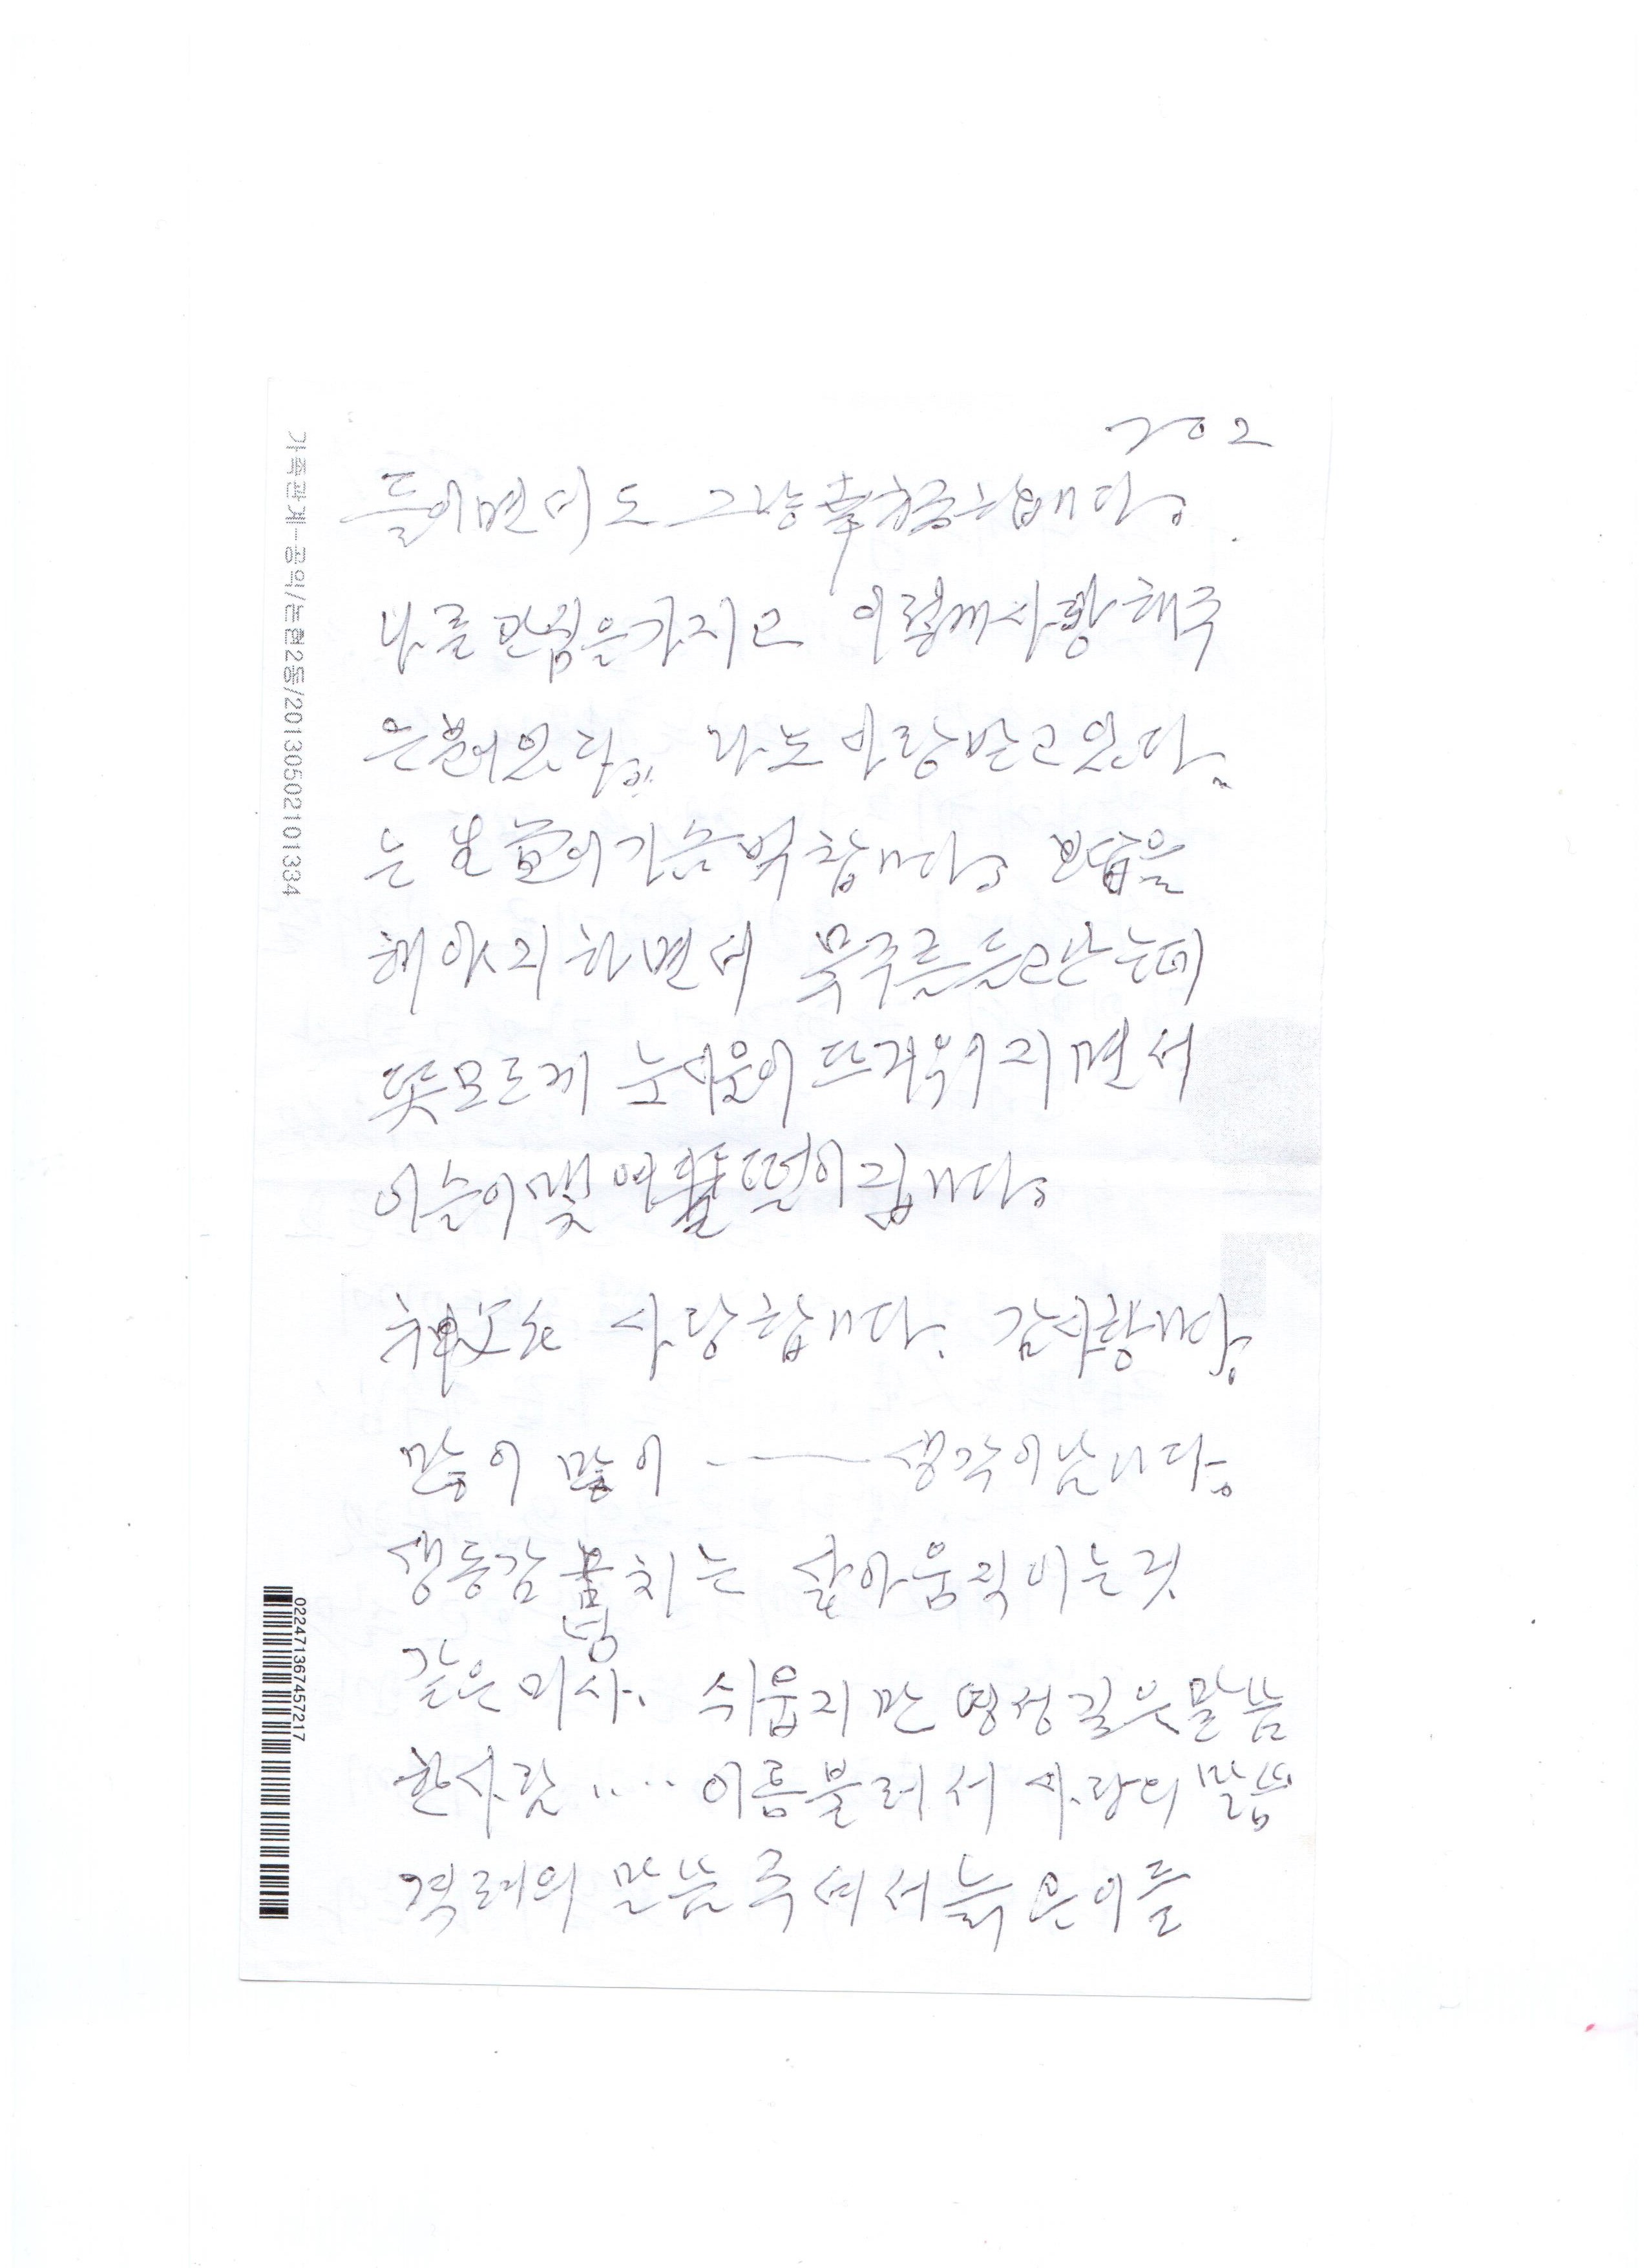 들이면서도 그냥 幸福합니다.
나를 관심을 가지고 이렇게 사랑해주
은 분이 있다. 나도 사랑받고 있다.
는 生覺이 가슴 벅참니다. 보답을
해야지 하면서 묵주를 들고 난는데
뜻모르게 눈시울이 뜨거워이지면서
이슬이 맺여 떨이집니다.
神父님 사랑합니다. 감사합니다.
많이 많이 — 생각이 남니다.
생동감 넘치는 살아 움직이는 것
같은 미사. 쉬웁지만 영성 깊은 말씀
한사람 ‥‥ 이름 불러서 사랑의 말씀
격려의 말씀 주셔서 늙은이들
가족관계-공익/논현2동/20130502101334
0224713674572​17